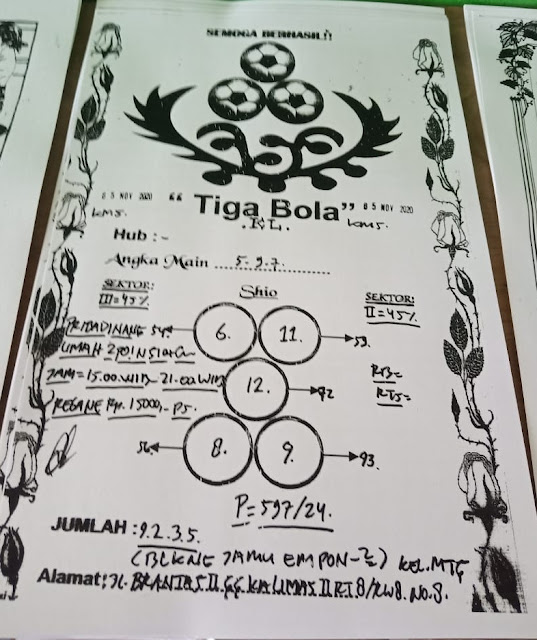 SEMOGA BERHASIL!!
05 NOV 2020 “ Tiga Bola ” 05 NOV 2020
kms. .KL. kms.
Hub : -
Angka Main ...5.9.7...
SEKTOR: Shio SEKTOR:
III=45% II=45%
54 6. 11. 53.
UMAH
JAM=15.00.WIB-21.00WIB 12. 92 RTB=
REGANE Rp.15000,-PS. RTS=
56. 8. 9. 93.
P=597/24.
JUMLAH : 9.2.3.5.
(BLKNE JAMU EMPON-2) KEL.MTG
Alamat: JL.BRANTAS II.GG.KALIMAS II.RT8/RW8.NO.8.